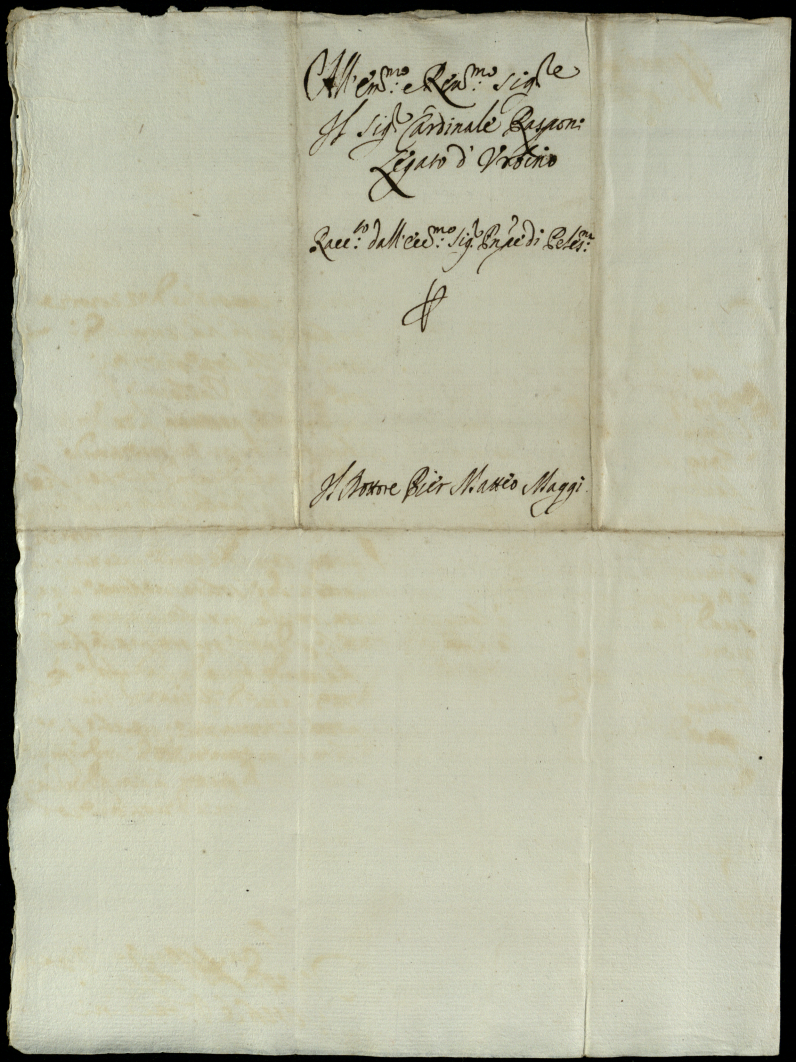 All'em.mo e Rev.mo Sig.re
Il Sig.r Cardinale Rasponi
Legato d'Urbino
Racc.to dall'ecc.mo Sig.r Pn̄pe di Palest.na
Il Dottore Pier Matteo Maggi